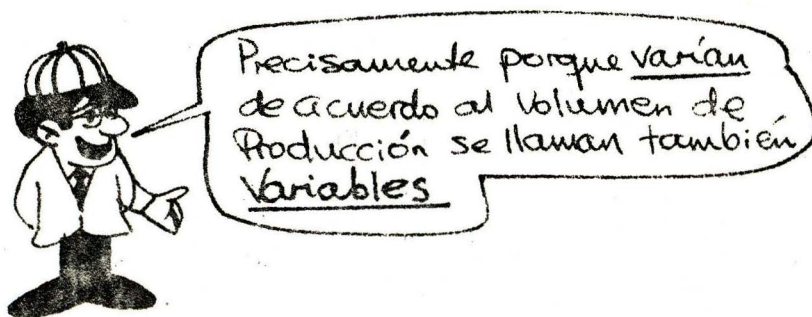 Precisamente porque varían
de acuerdo al Volumen de
Producción se llaman también
Variables